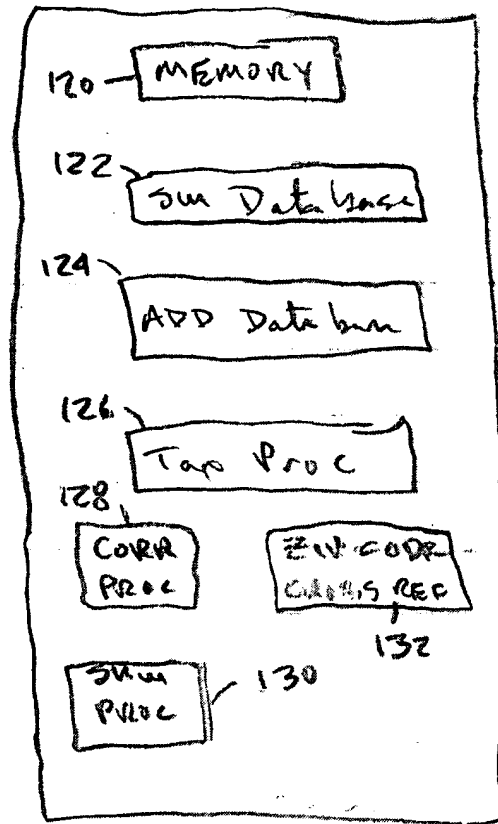 120
MEMORY
122
Sum Database
124
ADD Database
126
Tap Proc
128
CORR
PROC
ZIP CODE
CROSS REF
132
130
PROC